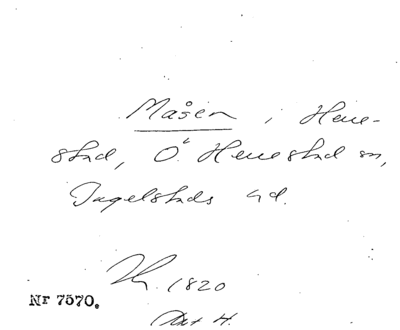 Måsen i Hene-
stad, Ö. Henestad sn,
Ingelstads hd.
1820
Nr 7570.
Akt H.